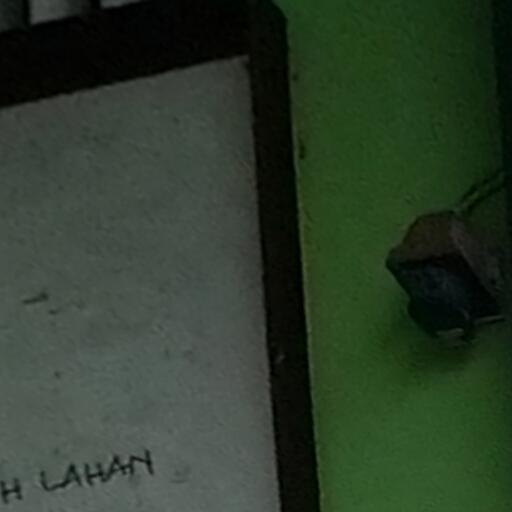 H LAHAN